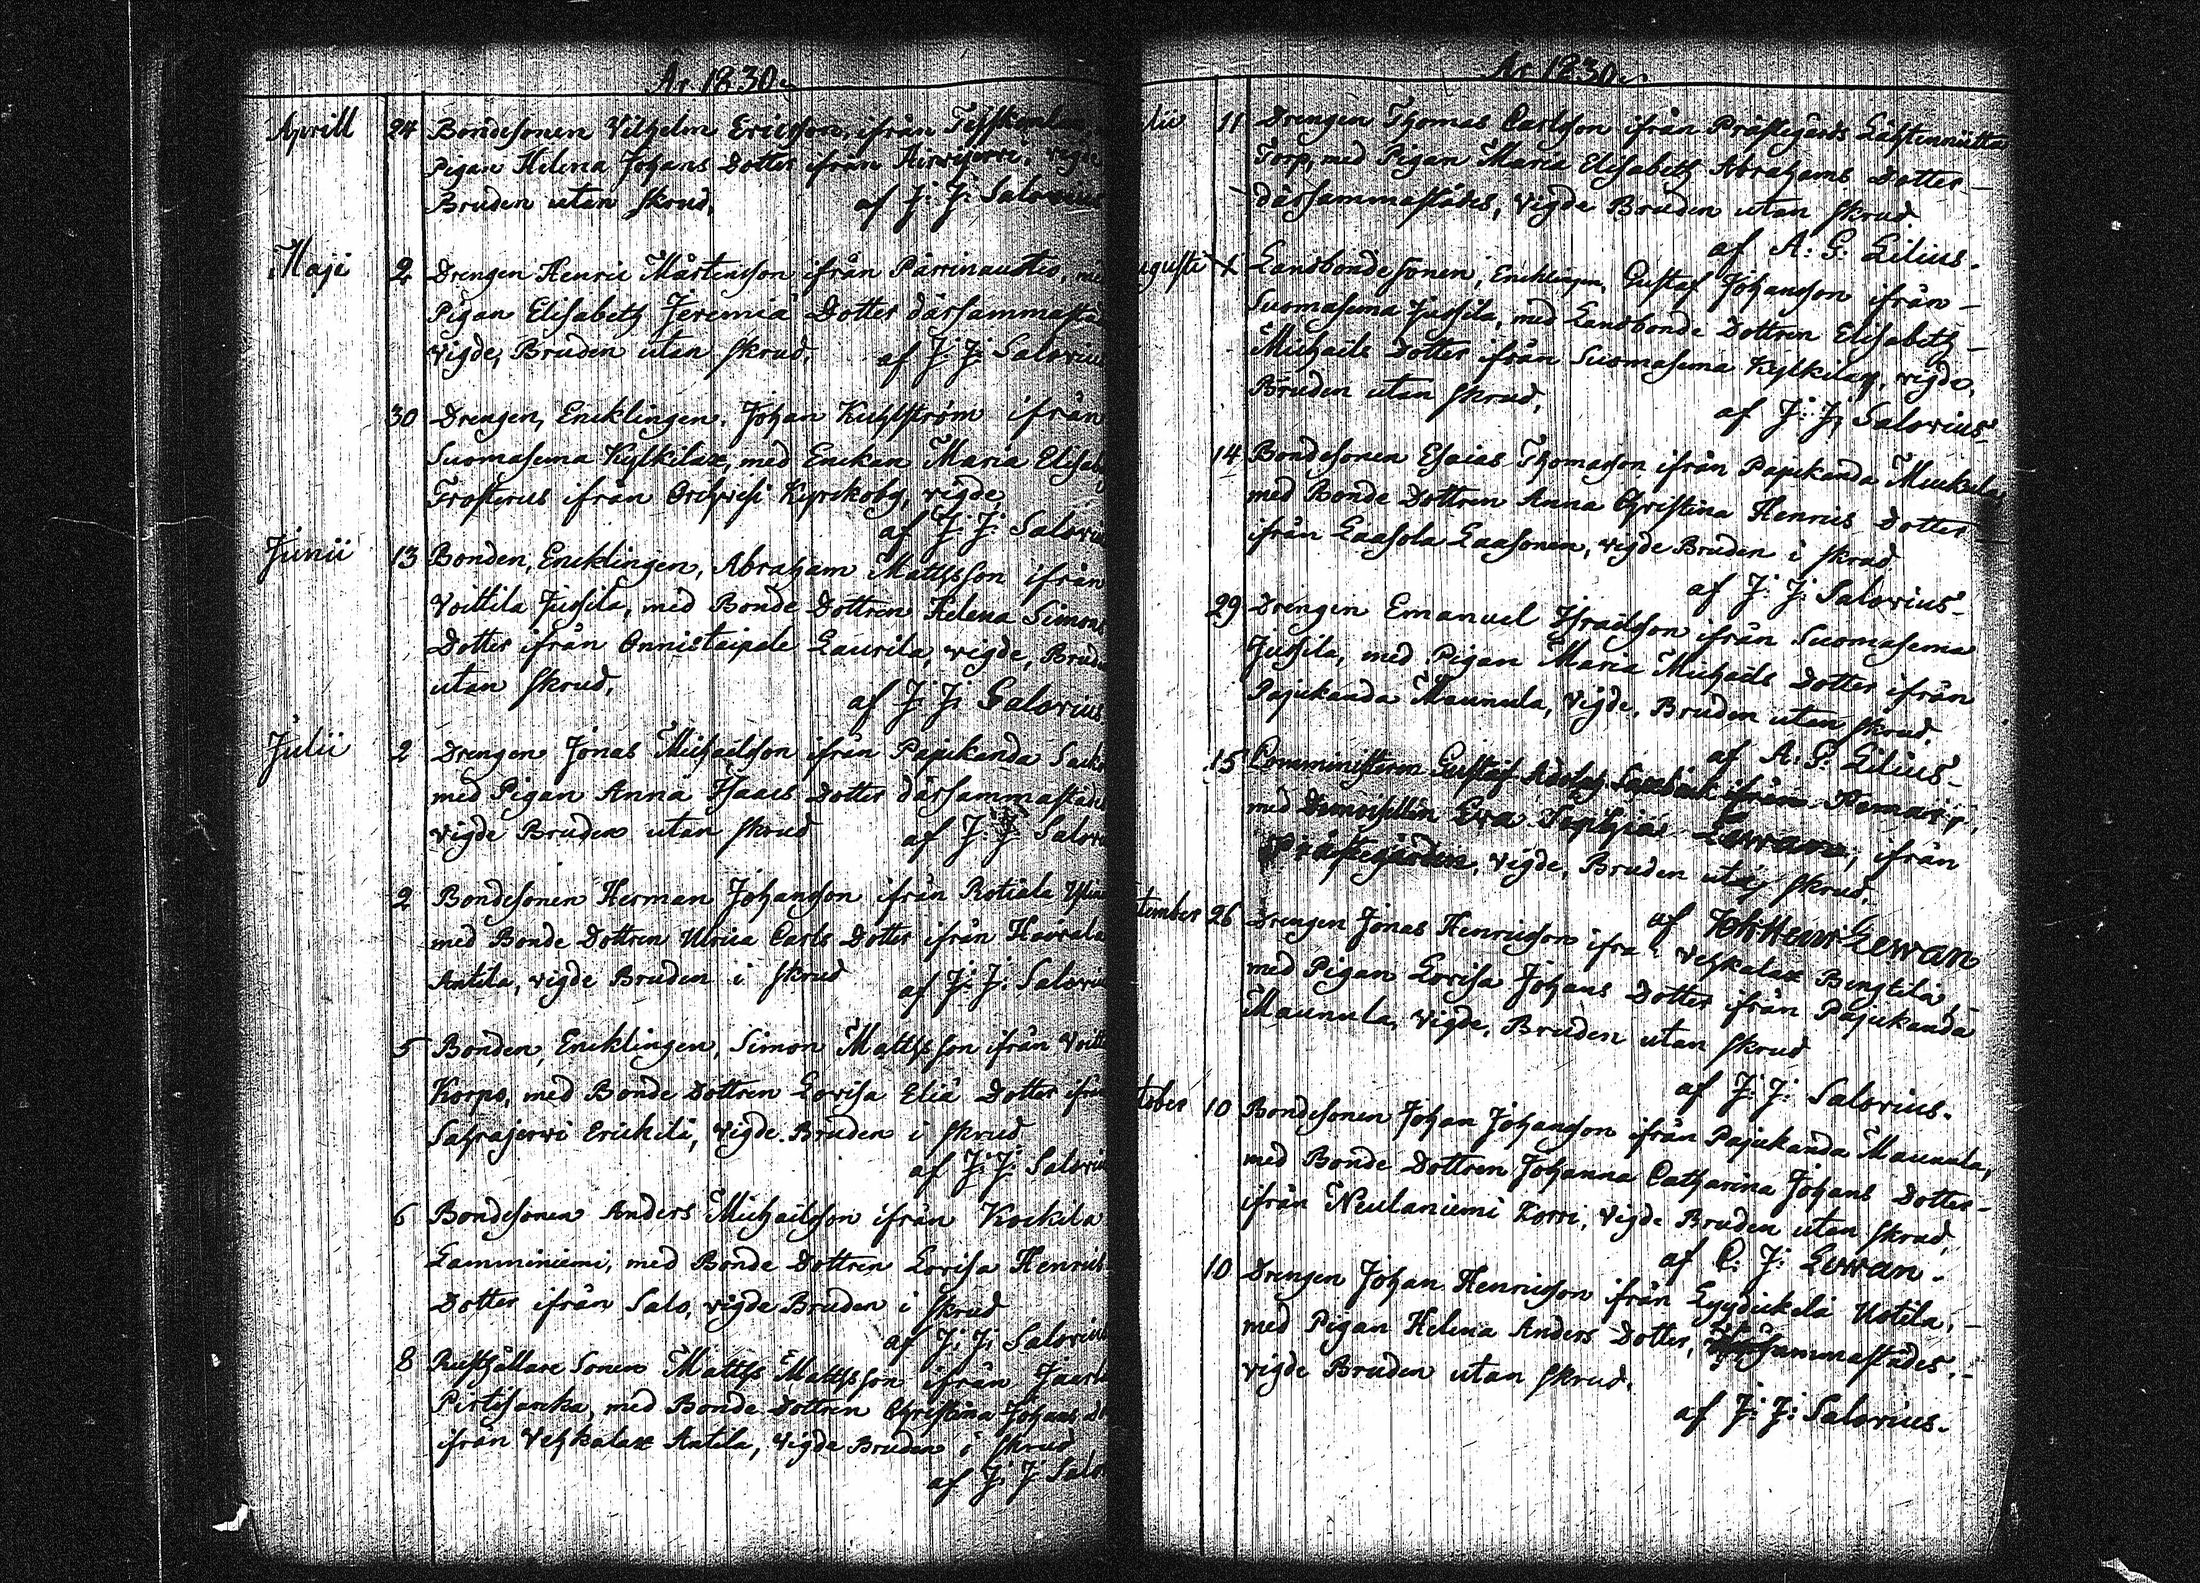 År 1830
Aprill 24 Bondesonen Vilhelm Ericsson, ifrån
Pigan Helena Johans Dotter ifrån Hirvijervi, vigde
Bruden utan skrud, af J: J: Salovius
Maji 2 Drengen Henric Mårtensson ifrån Pärrinaustio, med
Pigan Elisabeth Jeremiä Dotter därsammastäd
vigde, Bruden utan skrud, af J: J: Salovius
30 Drengen, Encklingen, Johan Kuhlström ifrån
Suomasema Kylkilax, med Enckan Maria Elisab
Frosterus ifrån Orihvesi Kyrckoby, vigde
af J: J: Salovius
Junii 13 Bonden, Encklingen, Abraham Mattsson ifrån
Voittila Jussila, med Bonde Dottren Helena Simons
Dotter ifrån Onnistaipale Laurila, vigde, Bruden
utan skrud, af J: J: Salovius
Julii 2 Drengen Jonas Michaelsson ifrån Pajukanda
med Pigan Anna Isaacs Dotter därsammastädes
vigde Bruden utan skrud af J: J: Salovi
2 Bondesonen Herman Johansson ifrån Rotiala
med Bonde Dottren Ulrica Carls Dotter ifrån Haviala
Antila, vigde Bruden i skrud af J: J: Salovius
5 Bonden, Encklingen, Simon Mattsson ifrån Voitti
Korpo, med Bonde Dottren Lovisa Eliä Dotter ifrån
Sahrajervi Erickilä, vigde Bruden i skrud
af J: J: Salovius
6 Bondesonen Anders Michaelsson ifrån Kockila
Lamminiemi, med Bonde Dottren Lovisa Henrics
Dotter ifrån Salo, vigde Bruden i skrud
af J: J: Salovius
8 Rusthållare Sonen Matths Mattsson ifrån
Pirtisanka, med Bonde Dottren Christina Johans
ifrån Vehkalax Antila, vigde Bruden i skrud
af J: J: Salov
År 1830
lii 11 Drengen Thomas Carlsson ifrån Prästegårds
Torp, med Pigan Maria Elisabeth Abrahams Dotter
därsammastädes, vigde Bruden utan skrud
af A: G: Lilius.
ugusti Landbondesonen, Encklingen, Gustaf Johansson ifrån
Suomasema Jussila, med Landbonde Dottren Elisabeth
Michaels Dotter ifrån Suomasema Kylkilax, vigde,
Bruden utan skrud, af J: J: Salovius
14 Bondesonen Esaias Thomasson ifrån Pajukanda Muckala
med Bonde Dottren Anna Christina Henrics Dotter
ifrån Laasola Laasonen, vigde Bruden i skrud
af J: J: Salovius
29 Drengen Emanuel Israelsson ifrån Suomasema
Jussila, med Pigan Maria Michaels Dotter ifrån
Pajukanda Maunula, vigde, Bruden utan skrud
af A: G: Lilius
15 Comministern Gustaf Adolph ifrån
med Demoisellen Eva Sophia Levvan, ifrån
Prästegården, vigde, Bruden utaj skrud,
af Joh Henr Levvan
tember 26 Drengen Jonas Henricsson ifrå Vehkalax Bengtilä
med Pigan Lovisa Johans Dotter ifrån Pajukanda
Maunula, vigde, Bruden utan skrud
af J: J: Salovius.
tober 10 Bondesonen Johan Johansson ifrån Pajukanda Maunula,
med Bonde Dottren Johanna Catharina Johans Dotter
ifrån Neulaniemi Korri, vigde Bruden utan skrud,
af C: J: Levvan.
10 Drengen Johan Henricsson ifrån Lyydickelä Uotila,
med Pigan Helena Anders Dotter, därsammastädes,
vigde Bruden utan skrud.
af J: J: Salovius.